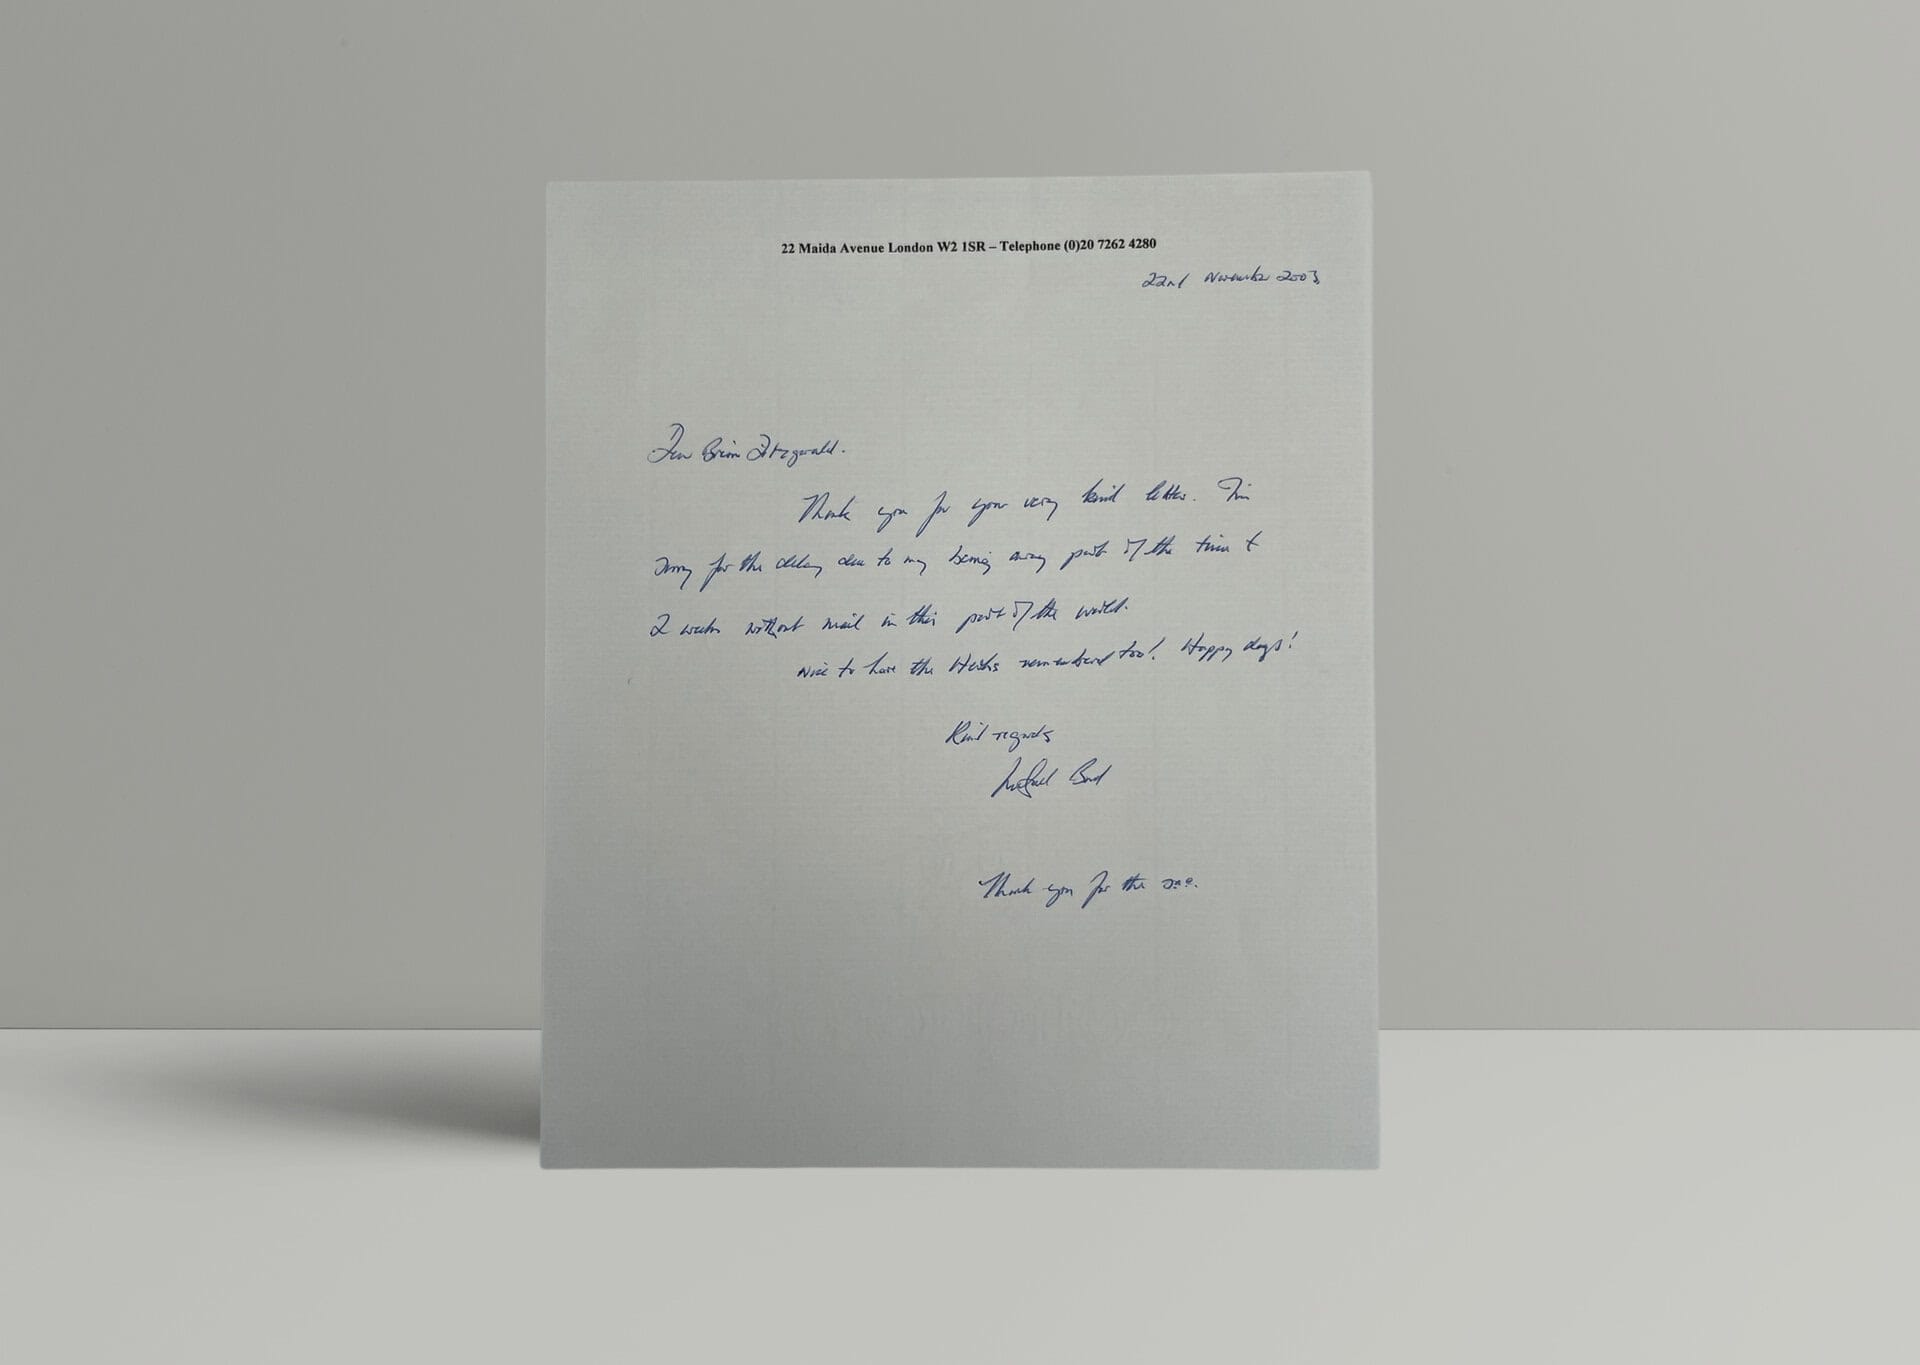 22 Maida Avenue London W2 1SR – Telephone (0)20 7262 4280
22nd November 2003
Dear Brian Fitzgerald.
Thank you for your very kind letter. I'm
sorry for the delay due to my being away part of the time &
2 weeks without mail in this part of the world.
Nice to have the Herbs remembered too! Happy days!
Kind regards
Michael Bond
Thank you for the s.a.e.